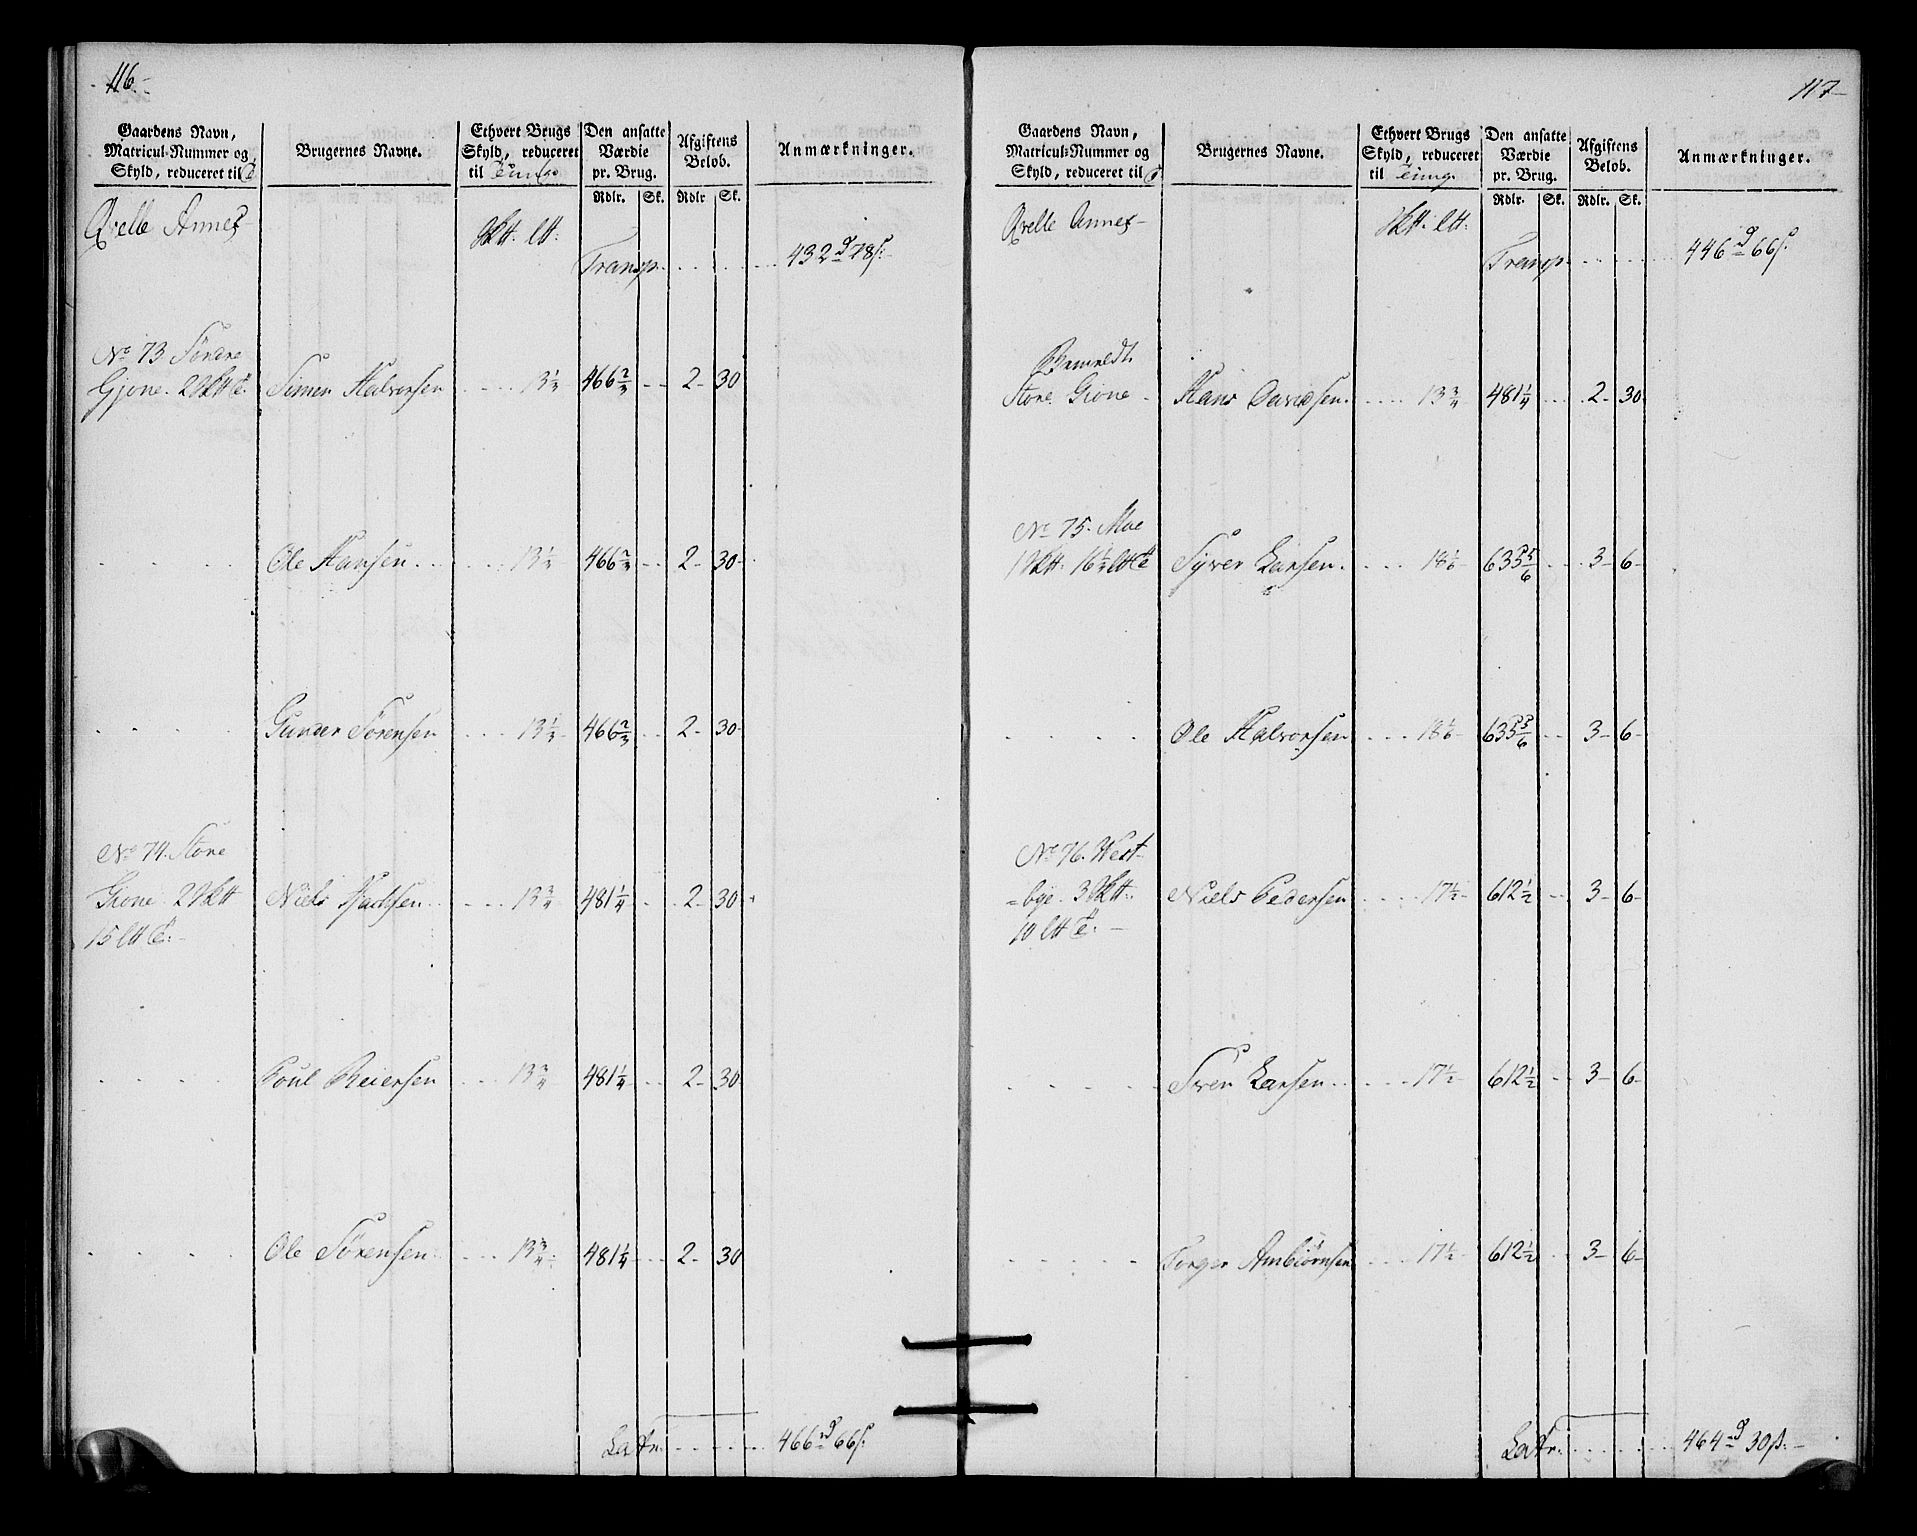 116.
Gaardens Navn,
Matricul-Nummer og
Skyld, reduceret til T
Brugernes Navne.
Ethvert Brugs
Skyld, reduceret
til Tunge
Den ansatte
Værdie
pr. Brug.
Rdlr. Sk.
Afgiftens
Beløb.
Rdlr Sk.
Anmærkninger.
Qvelle Annex
Sktt. ltt.
Transp. 432 d 78 s.
No 73 Søndre
Gjone. 2 Sktt T. Simen Halvorsen 13 1/3 466 2/3 2 30
Ole Hansen 13 1/3 466 2/3 2 30
Gunder Sørensen 13 1/3 466 2/3 2 30
No 74. Store
Gione. 2 Sktt Niels 13 3/4 481 1/4 2 30
15 ltt T.
Poul Reiersen 13 3/4 481 1/4 2 30
Ole Sørensen 13 3/4 481 1/4 2 30
Latr. 466 d 66 s.
117
Gaardens Navn,
Matricul-Nummer og
Skyld, reduceret til T
Brugernes Navne.
Ethvert Brugs
Skyld, reduceret
til Tung.
Den ansatte
Værdie
pr. Brug.
Rdlr. Sk.
Afgiftens
Beløb.
Rdlr. Sk.
Anmærkninger.
Qvelle Annex
Sktt. ltt.
Transp. 446 d 66 s.
Bemeldt.
Store Gione Hans Davidsen 13 3/4 481 1/4 2 30
No 75. Moe
1 Sktt. 16 1/3 ltt T Syver Larsen 18 1/6 635 5/6 3 6
Ole Halvorsen 18 1/6 635 5/6 3 6
No 76. West-
=bye. 3 Sktt. Niels Pedersen 17 1/2 612 1/2 3 6
10 ltt T.
Sven Larsen 17 1/2 612 1/2 3 6
Torger Ambiørnsen 17 1/2 612 1/2 3 6
Latr. 464 d 30 s.